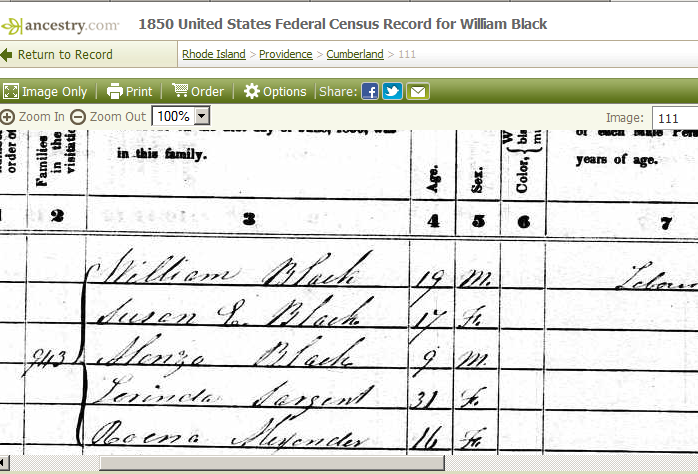 ancestry.com 1850 United States Federal Census Record for William Black
Return to Record Rhode Island > Providence > Cumberland > 111
Image Only Print Order Options Share:
Zoom In Zoom Out 100% Image: 111
in this family.
Families
in the
visitati
order of
Age.
Sex.
Color,
of each Male Pers
years of age.
2 3 4 5 6 7
William Black 19 M. Labour
Susan E. Black 17 F.
943 Alonzo Black 9 M.
Lorinda Sargent 31 F.
Roena Alexander 16 F.